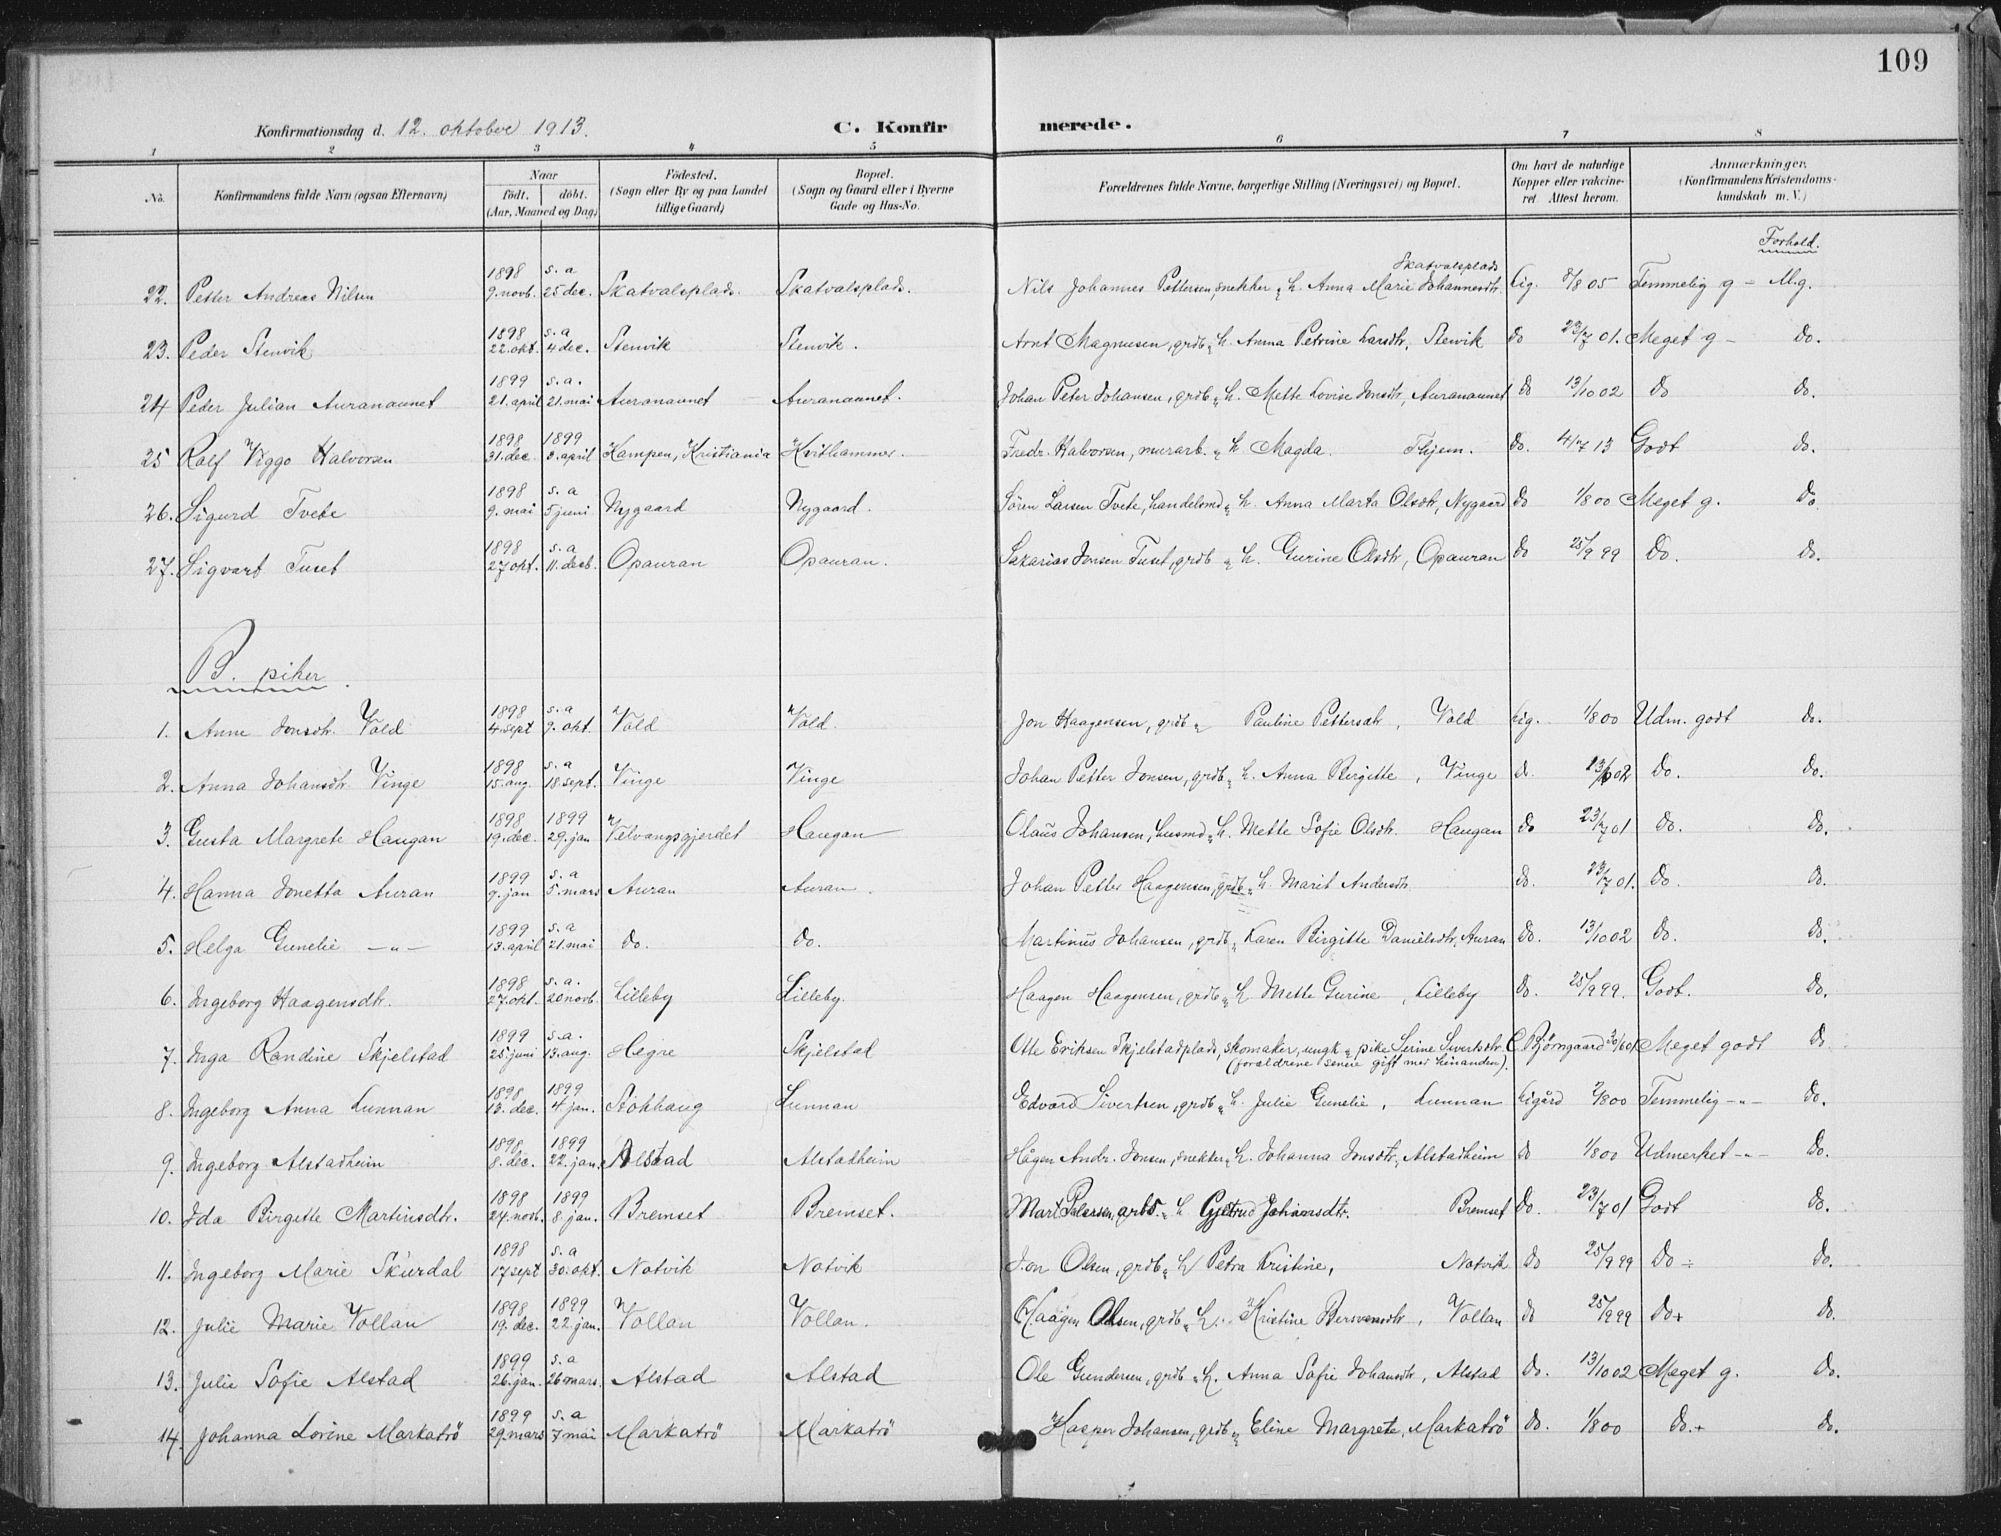 109
Konfirmationsdag d. 12. oktober 1913. C. Konfirmerede.
1 2 3 4 5 6 7 8
No. Konfirmandens fulde Navn (ogsaa Efternavn) Naar födt. döbt. (Aar, Maaned og Dag) Födested. (Sogn eller By og paa Landet tillige Gaard) Bopæl. (Sogn og Gaard eller i Byerne Gade og Hus-No. Forældrenes fulde Navne, borgerlige Stilling (Næringsvei) og Bopæl. Om havt de naturlige Kopper eller vakcineret. Attest herom. Anmærkninger. (Konfirmandens Kristendomskundskab m. V.)
Forhold.
22. Petter Andreas Nilsen 1898 9. novb. s. a 25 dec. Skatvalsplads. Skatvalsplads. Nils Johannes Pettersen, snekker & h. Anna Marie Johannesdtr. Skatvalsplads Eig. 8/8 05 Temmelig g - M.g.
23. Peder Stenvik 1898 22. okt. s. a 4 dec. Stenvik Stenvik. Arnt Magnusen, grdb & h. Anna Petrine Larsdtr, Stenvik do 23/7 01. Meget g - do.
24 Peder Julian Auranaunet 1899 21. april s. a. 21. mai Auranaunet Auranaunet. Johan Peter Johansen, grdb & h. Mette Lovise Jonsdtr, Auranaunet do 13/10 02 do do.
25 Ralf Viggo Halvorsen 1898 31. dec. 1899 3. april Kampen, Kristiania Kvithammer. Fredr. Halvorsen, murarb. & h. Magda. Thjem. do. 4/7 13 Godt do.
26. Sigurd Tvete 1898 9. mai s. a 5 juni Nygaard Nygaard. Sören Larsen Tvete, handelsmd & h. Anna Marta Olsdtr, Nygaard do 1/8 00 Meget g. do
27. Sigvart Tuset 1898 27 okt. s. a 11. decb. Opauran Opauran. Sakarias Jonsen Tuset, grdb & h. Gurine Olsdtr, Opauran do 25/9 99 do. do.
B. piker
1. Anne Jonsdtr. Vold 1898 4. sept s. a 9. okt. Vold Vold. Jon Haagensen, grdb & Pauline Pettersdtr, Vold Eig. 1/8 00 Udm. godt do.
2. Anna Johansdtr. Vinge 1898 15. aug. s. a 18 sept. Vinge Vinge Johan Petter Jonsen, grdb & h. Anna Birgitte, Vinge do. 13/10 02 do. do.
3. Gusta Margrete Haugan 1898 19. dec. 1899 29. jan Velvangsgjerdet Haugan Olaus Johansen, husmd & h. Mette Sofie Olsdtr. Haugan do 23/7 01 do. do.
4. Hanna Jonetta Auran 1899 9. jan s. a 5. mars Auran Auran. Johan Petter Haagensen, grdb & h. Marit Andersdtr. do. 23/7 01. do. do.
5. Helga Gunelie -"- 1899 13. april s. a 21. mai do. do. Martinus Johansen, grdb & Karen Birgitte Danielsdtr, Auran do. 13/10 02 do. do.
6. Ingeborg Haagensdtr. 1898 27. okt. s. a. 20 novb. Lilleby Lilleby. Haagen Haagensen, grdb & h Mette Gurine, Lilleby do. 25/9 99. Godt. do.
7. Inga Randine Skjelstad 1899 25. juni s. a. 13. aug. Hegre Skjelstad Otte Eriksen Skjelstadplads, skomaker, ungk & pike Serine Sivertsdtr. (forældrene senere gift med hinanden). C Björngaard 30/6 01 Meget godt do
8. Ingeborg Anna Lunnan 1898 13. dec. 1899 4 jan. Stokhaug Lunnan Edvard Sivertsen, grdb & h. Julie Gunelie, Lunnan Eigård 2/8 00 Temmelig -"- do.
9. Ingeborg Alstadheim 1898 8. dec. 1899 22. jan. Alstad Alstadheim Hågen Andr. Jonsen, snekker & h. Johanna Jonsdtr, Alstadheim do 1/8 00 Udmerket -"- do.
10. Ida Birgitte Martinsdtr. 1898 24. novb. 1899 8. jan. Bremset Bremset. Mart Petersen, arb. & h Gjetrud Johansdtr. Bremset do. 23/7 01 Godt do.
11. Ingeborg Marie Skurdal 1898 17 sept s. a 30. okt. Notvik Notvik Jon Olsen, grdb & h Petra Kristine, Notvik do 25/9 99 do ÷ do.
12. Julie Marie Vollan 1898 19. dec. 1899 22. jan. Vollan Vollan. Haagen Olsen, grdb & h. Kristine Bersvensdtr, Vollan do 25/9 99 do+ do.
13. Julie Sofie Alstad 1899 26. jan. s. a 26 mars. Alstad Alstad Ole Gundersen, grdb & h. Anna Sofie Johansdtr, Alstad do. 13/10 02 Meget g. do.
14. Johanna Lorine Markatrö 1899 29. mars s. a 7 mai Markatrö Markatrö Kasper Johansen, grdb & Eline Margrete, Markatrö do. 1/8 00 do.+ do.